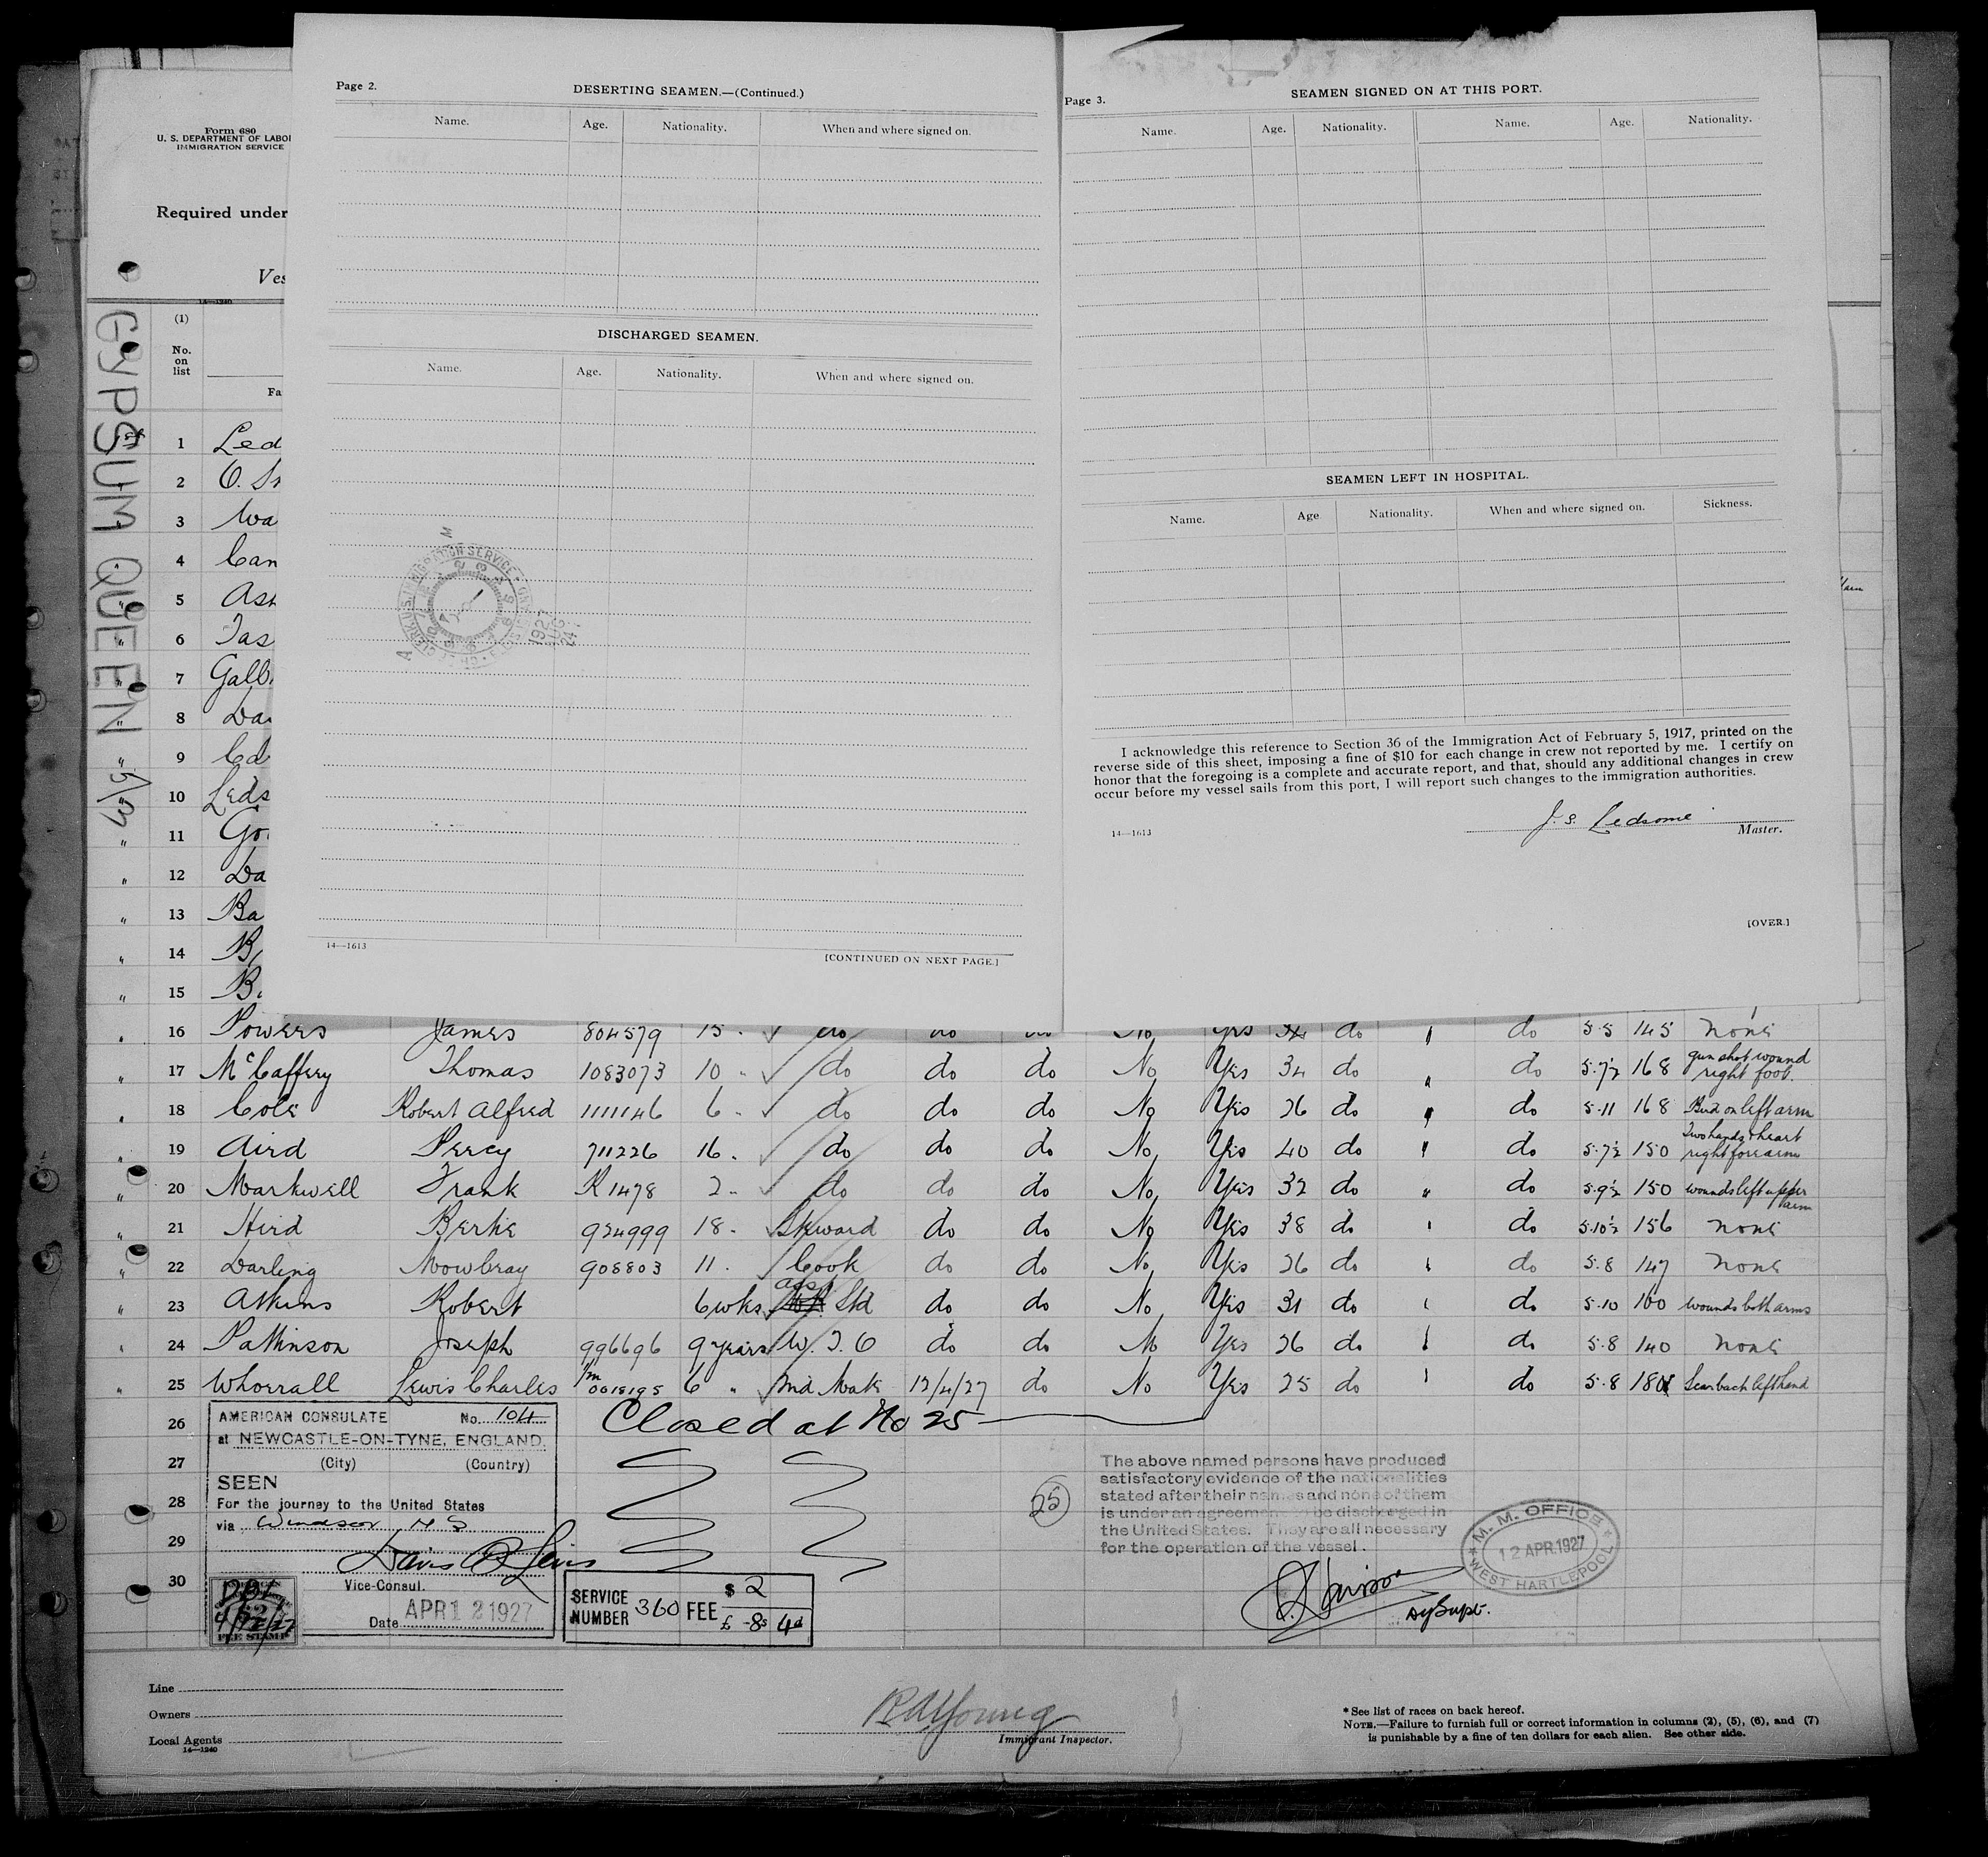 Page 2.
DESERTING SEAMEN.—(Continued.)
Name. Age. Nationality. When and where signed on.
DISCHARGED SEAMEN.
Name. Age. Nationality. When and where signed on.
14—1613
[CONTINUED ON NEXT PAGE.]
Page 3.
SEAMEN SIGNED ON AT THIS PORT.
Name. Age. Nationality. Name. Age. Nationality.
SEAMEN LEFT IN HOSPITAL.
Name. Age Nationality. When and where signed on. Sickness.
I acknowledge this reference to Section 36 of the Immigration Act of February 5, 1917, printed on the
reverse side of this sheet, imposing a fine of $10 for each change in crew not reported by me. I certify on
honor that the foregoing is a complete and accurate report, and that, should any additional changes in crew
occur before my vessel sails from this port, I will report such changes to the immigration authorities.
J. S. Ledsome
14—1613 Master.
[OVER.]
Form 680
U. S. DEPARTMENT OF LABOR
IMMIGRATION SERVICE
Required under
Ves
14—1240
GYPSUM QUEEN
(1)
No.
on
list
Fa
1 Led
2 O. Sr
3 Wa
4 Can
5 Ash
6 Tas
7 Galb
8 Da
9 Ed
10 Leds
11 Go
12 Da
13 Ba
14 B
15 B
16 Powers James 804579 15 do do do No Yes 34 do " do 5·5 145 none
17 McCaffery Thomas 1083073 10 " do do do No Yes 34 do " do 5·7½ 168 gun shot wound right foot.
18 Cole Robert Alfred 1111146 6 " do do do No Yes 26 do " do 5·11 168 Bird on left arm
19 Aird Percy 711226 16 " do do do No Yes 40 do " do 5·7½ 150 Two hands & heart right forearm
20 Markwell Frank R1478 2 " do do do No Yes 32 do " do 5·9½ 150 wounds left upper arm
21 Hird Bertie 924999 18 " Steward do do No Yes 38 do " do 5·10½ 156 none
22 Darling Mowbray 908803 11 " Cook do do No Yes 26 do " do 5·8 147 none
23 Atkins Robert 6 wks ass Std do do No Yes 31 do " do 5·10 160 wounds both arms
24 Pattinson Joseph 996696 9 years W. T. O do do No Yes 26 do " do 5·8 140 none
25 Whorrall Lewis Charles 0018195 6 " 2nd Mate 12/4/27 do No Yes 25 do " do 5·8 180 Scar back left hand
26 Closed at No 25
27
28
29
30
AMERICAN CONSULATE No. 104
at NEWCASTLE-ON-TYNE, ENGLAND.
(City) (Country)
SEEN
For the journey to the United States
via Windsor N S
Vice-Consul.
Date APR 12 1927
FEE STAMP
SERVICE NUMBER 360 FEE $ 2
£ -8s 4d
25
The above named persons have produced
satisfactory evidence of the nationalities
stated after their names and none of them
is under an agreement to be discharged in
the United States. They are all necessary
for the operation of the vessel.
M. M. OFFICE
12 APR. 1927
WEST HARTLEPOOL
Dy Supt.
Line
Owners
Local Agents
14—1240
R A Young
Immigrant Inspector.
* See list of races on back hereof.
NOTE.—Failure to furnish full or correct information in columns (2), (5), (6), and (7)
is punishable by a fine of ten dollars for each alien. See other side.